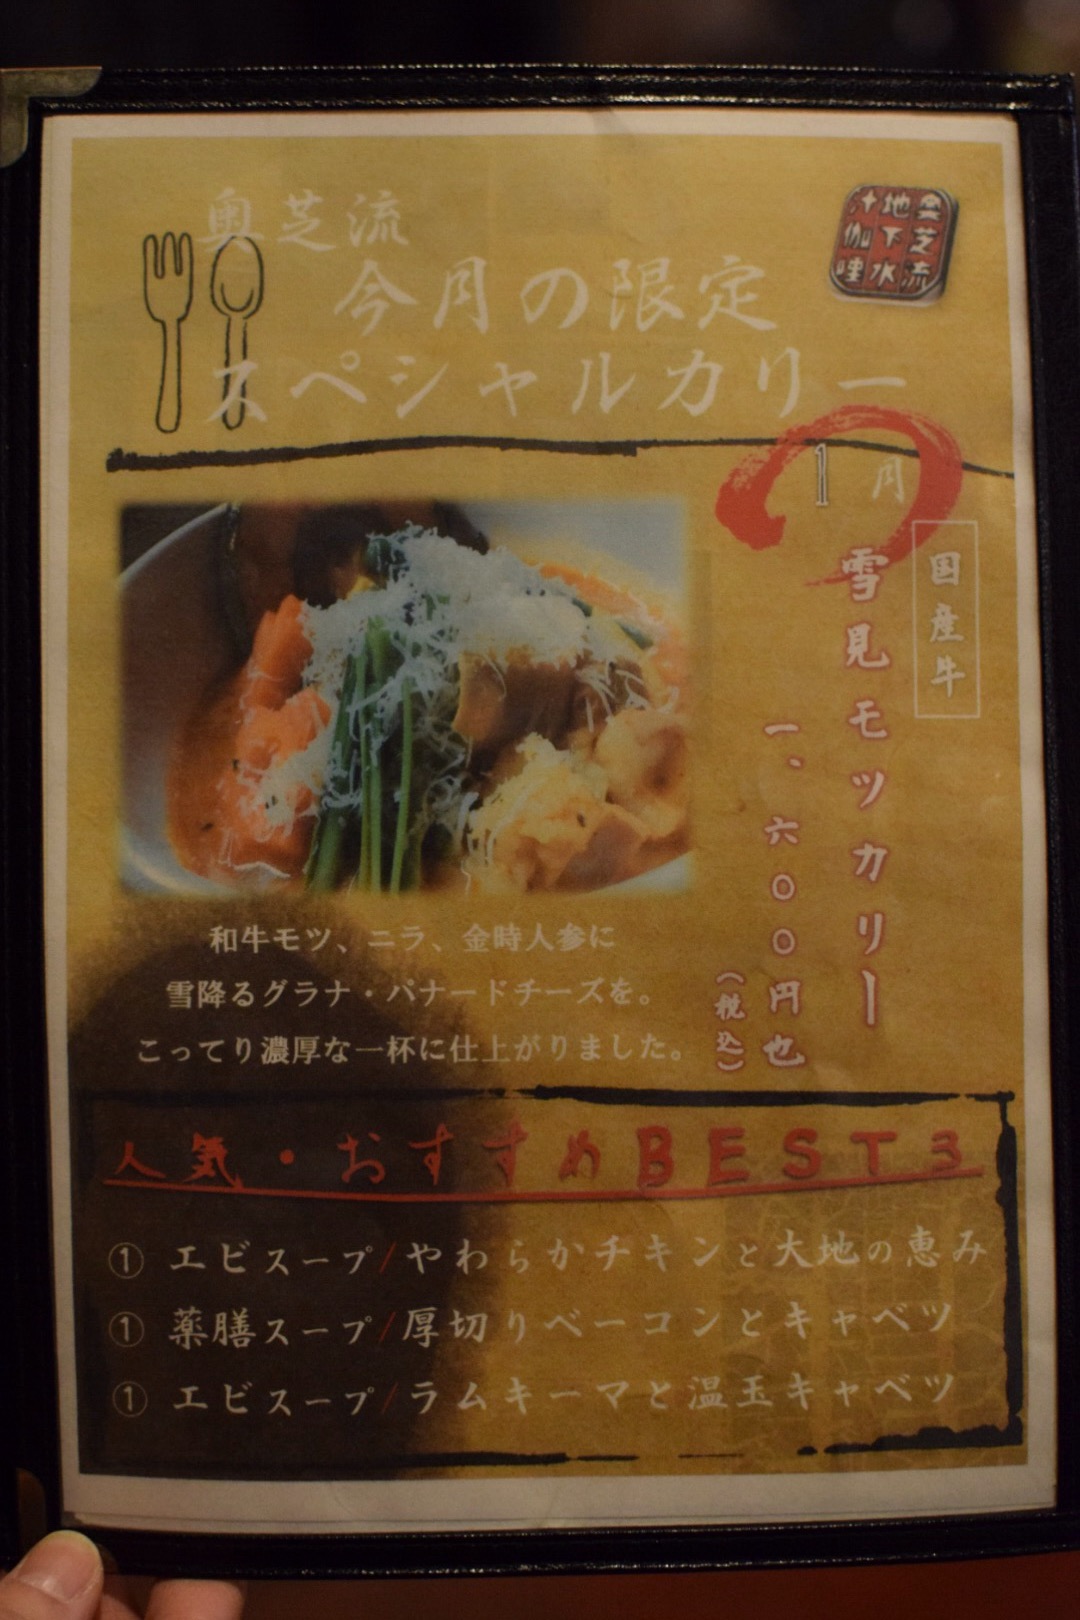 奥芝流
今月の限定
スペシャルカリー
奥芝流
地下水
汁伽哩
1月
国産牛
雪見モツカリー
一、六〇〇円也
(税込)
和牛モツ、ニラ、金時人参に
雪降るグラナ・パナードチーズを。
こってり濃厚な一杯に仕上がりました。
人気・おすすめBEST3
① エビスープ/やわらかチキンと大地の恵み
① 薬膳スープ/厚切りベーコンとキャベツ
① エビスープ/ラムキーマと温玉キャベツ